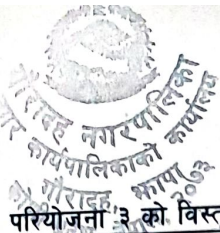 गौरादह नगरपालिका
नगर कार्यपालिकाको कार्यालय
गौरादह झापा
२०७३
परियोजना ३ को विस्त